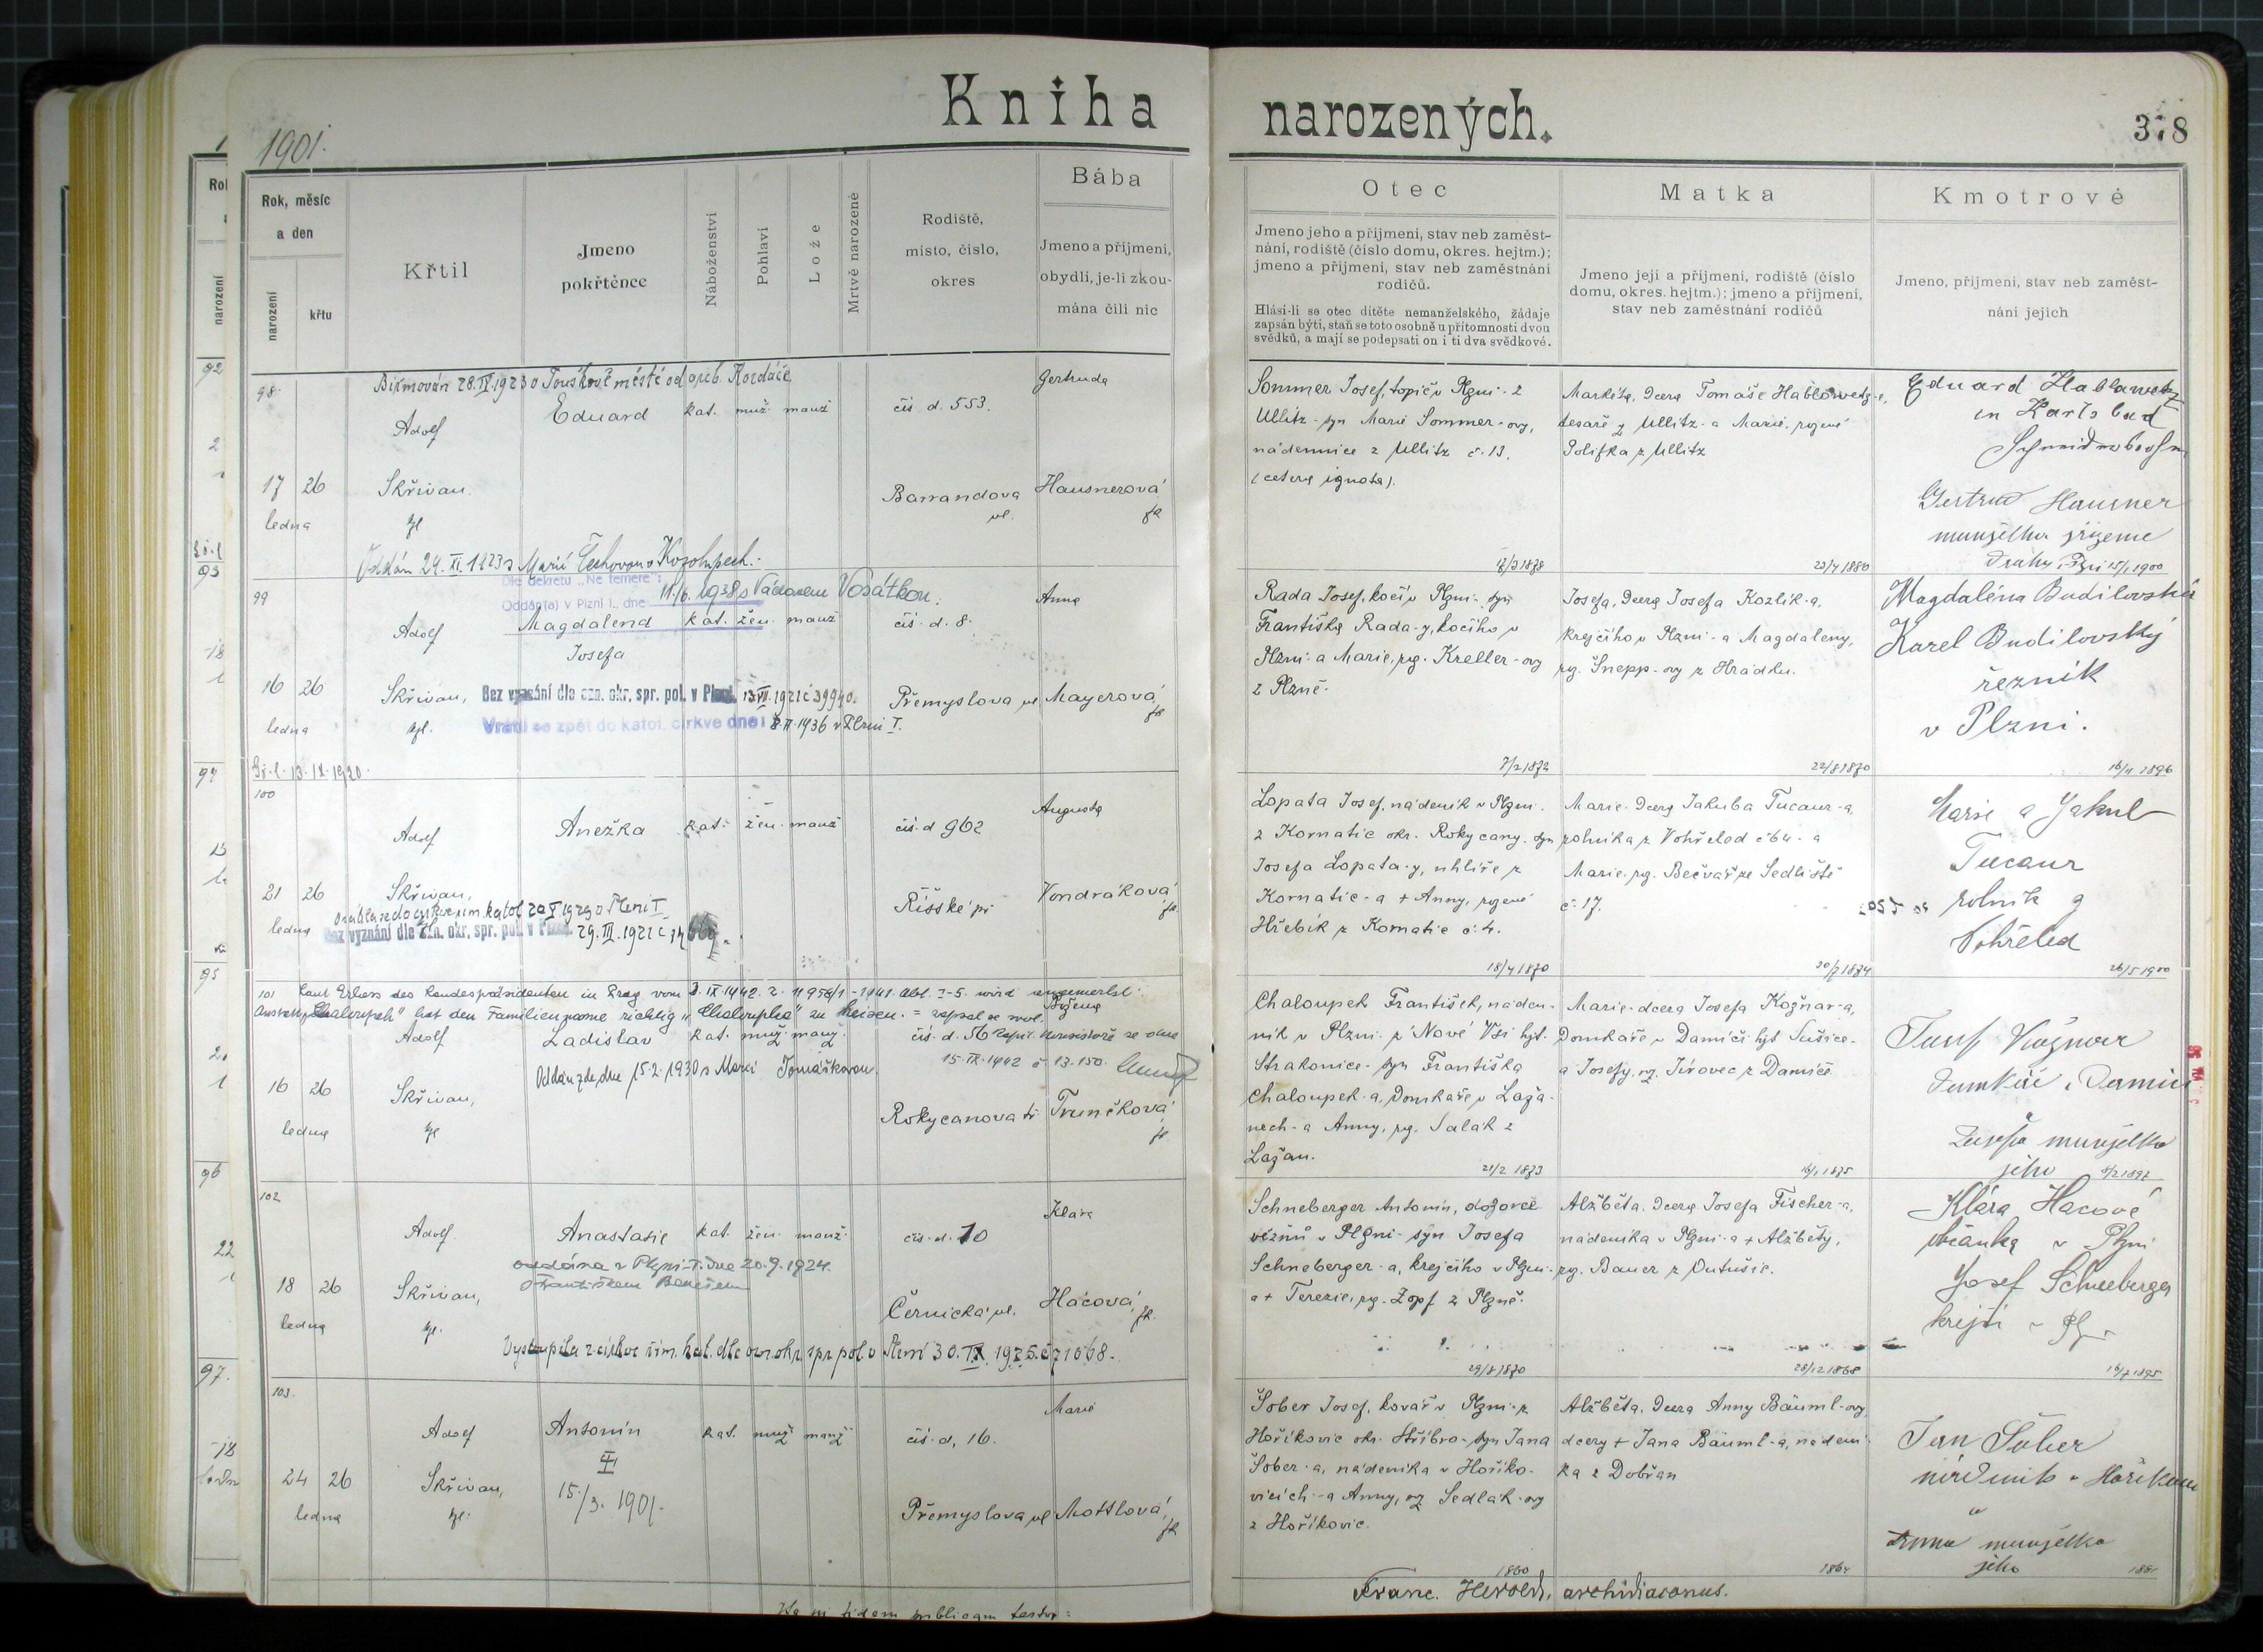 Kniha
narozených.
378
1901.
Rok, měsíc
a den
narození
křtu
Křtil
Jmeno
pokřtěnce
Náboženství
Pohlaví
Lože
Mrtvě narozené
Rodiště,
místo, číslo,
okres
Bába
Jmeno a příjmení,
obydlí, je-li zkou-
mána čili nic
Otec
Jmeno jeho a příjmení, stav neb zaměst-
nání, rodiště (číslo domu, okres. hejtm.);
jmeno a příjmení, stav neb zaměstnání
rodičů.
Hlásí-li se otec dítěte nemanželského, žádaje
zapsán býti, staň se toto osobně u přítomnosti dvou
svědků, a mají se podepsati on i ti dva svědkové.
Matka
Jmeno její a příjmení, rodiště (číslo
domu, okres. hejtm.); jmeno a příjmení,
stav neb zaměstnání rodičů
Kmotrové
Jmeno, příjmení, stav neb zaměst-
nání jejich
98.
Biřmován 28.IV.1923 v Touškově městě od arcib. Kordače
Adolf
Eduard kat. muž. manž
čís. d. 553.
Gertruda
17 26
ledna
Skřivan.
Barrandova
ul.
Hausnerová
Oddán 24. XI. 1923 s Marií
Sommer Josef, topič v Plzni - z
Ullitz - syn Marie Sommer-ovy,
nádennice z Ullitz č. 13.
(cetera ignota).
Markéta, dcera Tomáše Hablowetz-e,
tesaře z Ullitz - a Marie, rozené
Polifka z Ullitz
Eduard Hablawetz
in Karlsbad
Gertrud Hausner
manželka zřízence
dráhy, Plzni 15/1 1900
17/3 1878
22/4 1880
99
Dle dekretu „Ne temere":
Oddán(a) v Plzni I., dne 11./6. 1938 s Václavem Vosátkou.
Adolf
Magdalena kat. žen. manž
Josefa
čís. d. 8.
Anna
16 26
ledna
Skřivan,
Bez vyznání dle ozn. okr. spr. pol. v Plzni. 13.VII.1921 č 39940.
Vrátil se zpět do katol. církve dne: 8.II.1936 v Plzni I.
Přemyslova ul
Mayerová
Kř.l. 13.IX.1920.
Rada Josef, kočí v Plzni - syn
Františka Rada-y, kočího v
Plzni - a Marie, roz. Kreller-ovy
z Plzně.
Josefa, dcera Josefa Kozlík-a,
krejčího v Plzni - a Magdaleny,
roz. Šnepp-ovy z Hrádku.
Magdaléna Budilovská
Karel Budilovský
řezník
v Plzni.
7/2 1872
22/8 1870
16/11 1896
100
Adolf
Anežka kat. žen. manž
čís. d 962
Augusta
21 26
ledna
Skřivan,
29.III.1921 č
Říšské př
Vondráková
Lopata Josef, nádeník v Plzni.
z Kornatic okr. Rokycany - syn
Josefa Lopata-y, uhlíře z
Kornatic - a + Anny, rozené
Hřebík z Kornatic č. 4.
Marie - dcera Jakuba Tucaur-a,
rolníka z Vohřeled č 64 - a
Marie, roz. Bečvář ze Sedliště
č. 17.
Marie a Jakub
Tucaur
rolník z
Vohřeled
18/4 1870
20/7 1874
26/5 1900
101 Laut Erlass des Landespräsidenten in Prag vom 3.IX.1942. Z. 11956/1-1941 Abt. I-5. wird angemerkt:
Anstatt „Chaloupek" hat der Familienname richtig „Chaloupka" zu heissen. = zapsal se svol.
Adolf
Ladislav kat. muž manž.
čís. d. 56
Božena
15.IX.1942 č 13.150.
Oddán zde, dne 15.2.1930 s Marií Tomáškovou.
16 26
ledna
Skřivan,
Rokycanova tř
Trunčková
Chaloupek František, náden-
ník v Plzni - z Nové Vsi hjt.
Strakonice - syn Františka
Chaloupek-a, domkáře v Laža-
nech - a Anny, roz. Salák z
Lažan.
Marie - dcera Josefa Kožnar-a,
domkáře v Damíči hjt Sušice -
a Josefy, roz. Jírovec z Damíče
Josef Kožnar
domkář z Damíče
Josefa manželka
jeho
21/2 1873
16/1 1875
102
Adolf.
Anastasie kat. žen. manž.
oddána v Plzni I. dne 20.9.1924.
s Františkem Benešem
čís. d. 10
Klára
18 26
ledna
Skřivan,
Černická ul.
Hácová
Vystoupila z církve řím. kat. dle ozn. okr. spr. pol. v Plzni 30.IX.1925. č 71068.
Schneberger Antonín, dozorce
vězňů v Plzni - syn Josefa
Schneberger-a, krejčího v Plzni -
a + Terezie, roz. Zopf z Plzně.
Alžběta, dcera Josefa Fischer-a,
nádeníka v Plzni - a + Alžběty,
roz. Bauer z Putušic.
Klára Hacové
občanka v Plzni
Josef Schneeberger
krejčí v Plz
29/8 1870
28/12 1868
16/7 1895
103.
Adolf
Antonín kat. muž manž
15./3. 1901.
čís. d. 16.
Marie
24 26
ledna
Skřivan,
Přemyslova ul
Mottlová
Šober Josef, kovář v Plzni - z
Hoříkovic okr. Stříbro - syn Jana
Šober-a, nádeníka v Hoříko-
vicích - a Anny, roz Sedlák-ovy
z Hoříkovic.
Alžběta, dcera Anny Bäuml-ovy,
dcery + Jana Bäuml-a, nádení-
ka z Dobřan
Jan Šober
nádeník v Hoříkovic
a
Anna manželka
jeho
1860
1864
1881
Franc. Herold, archidiaconus.
In fidem publicam testor: